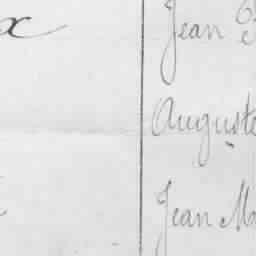 x Jean
Auguste
Jean Ma